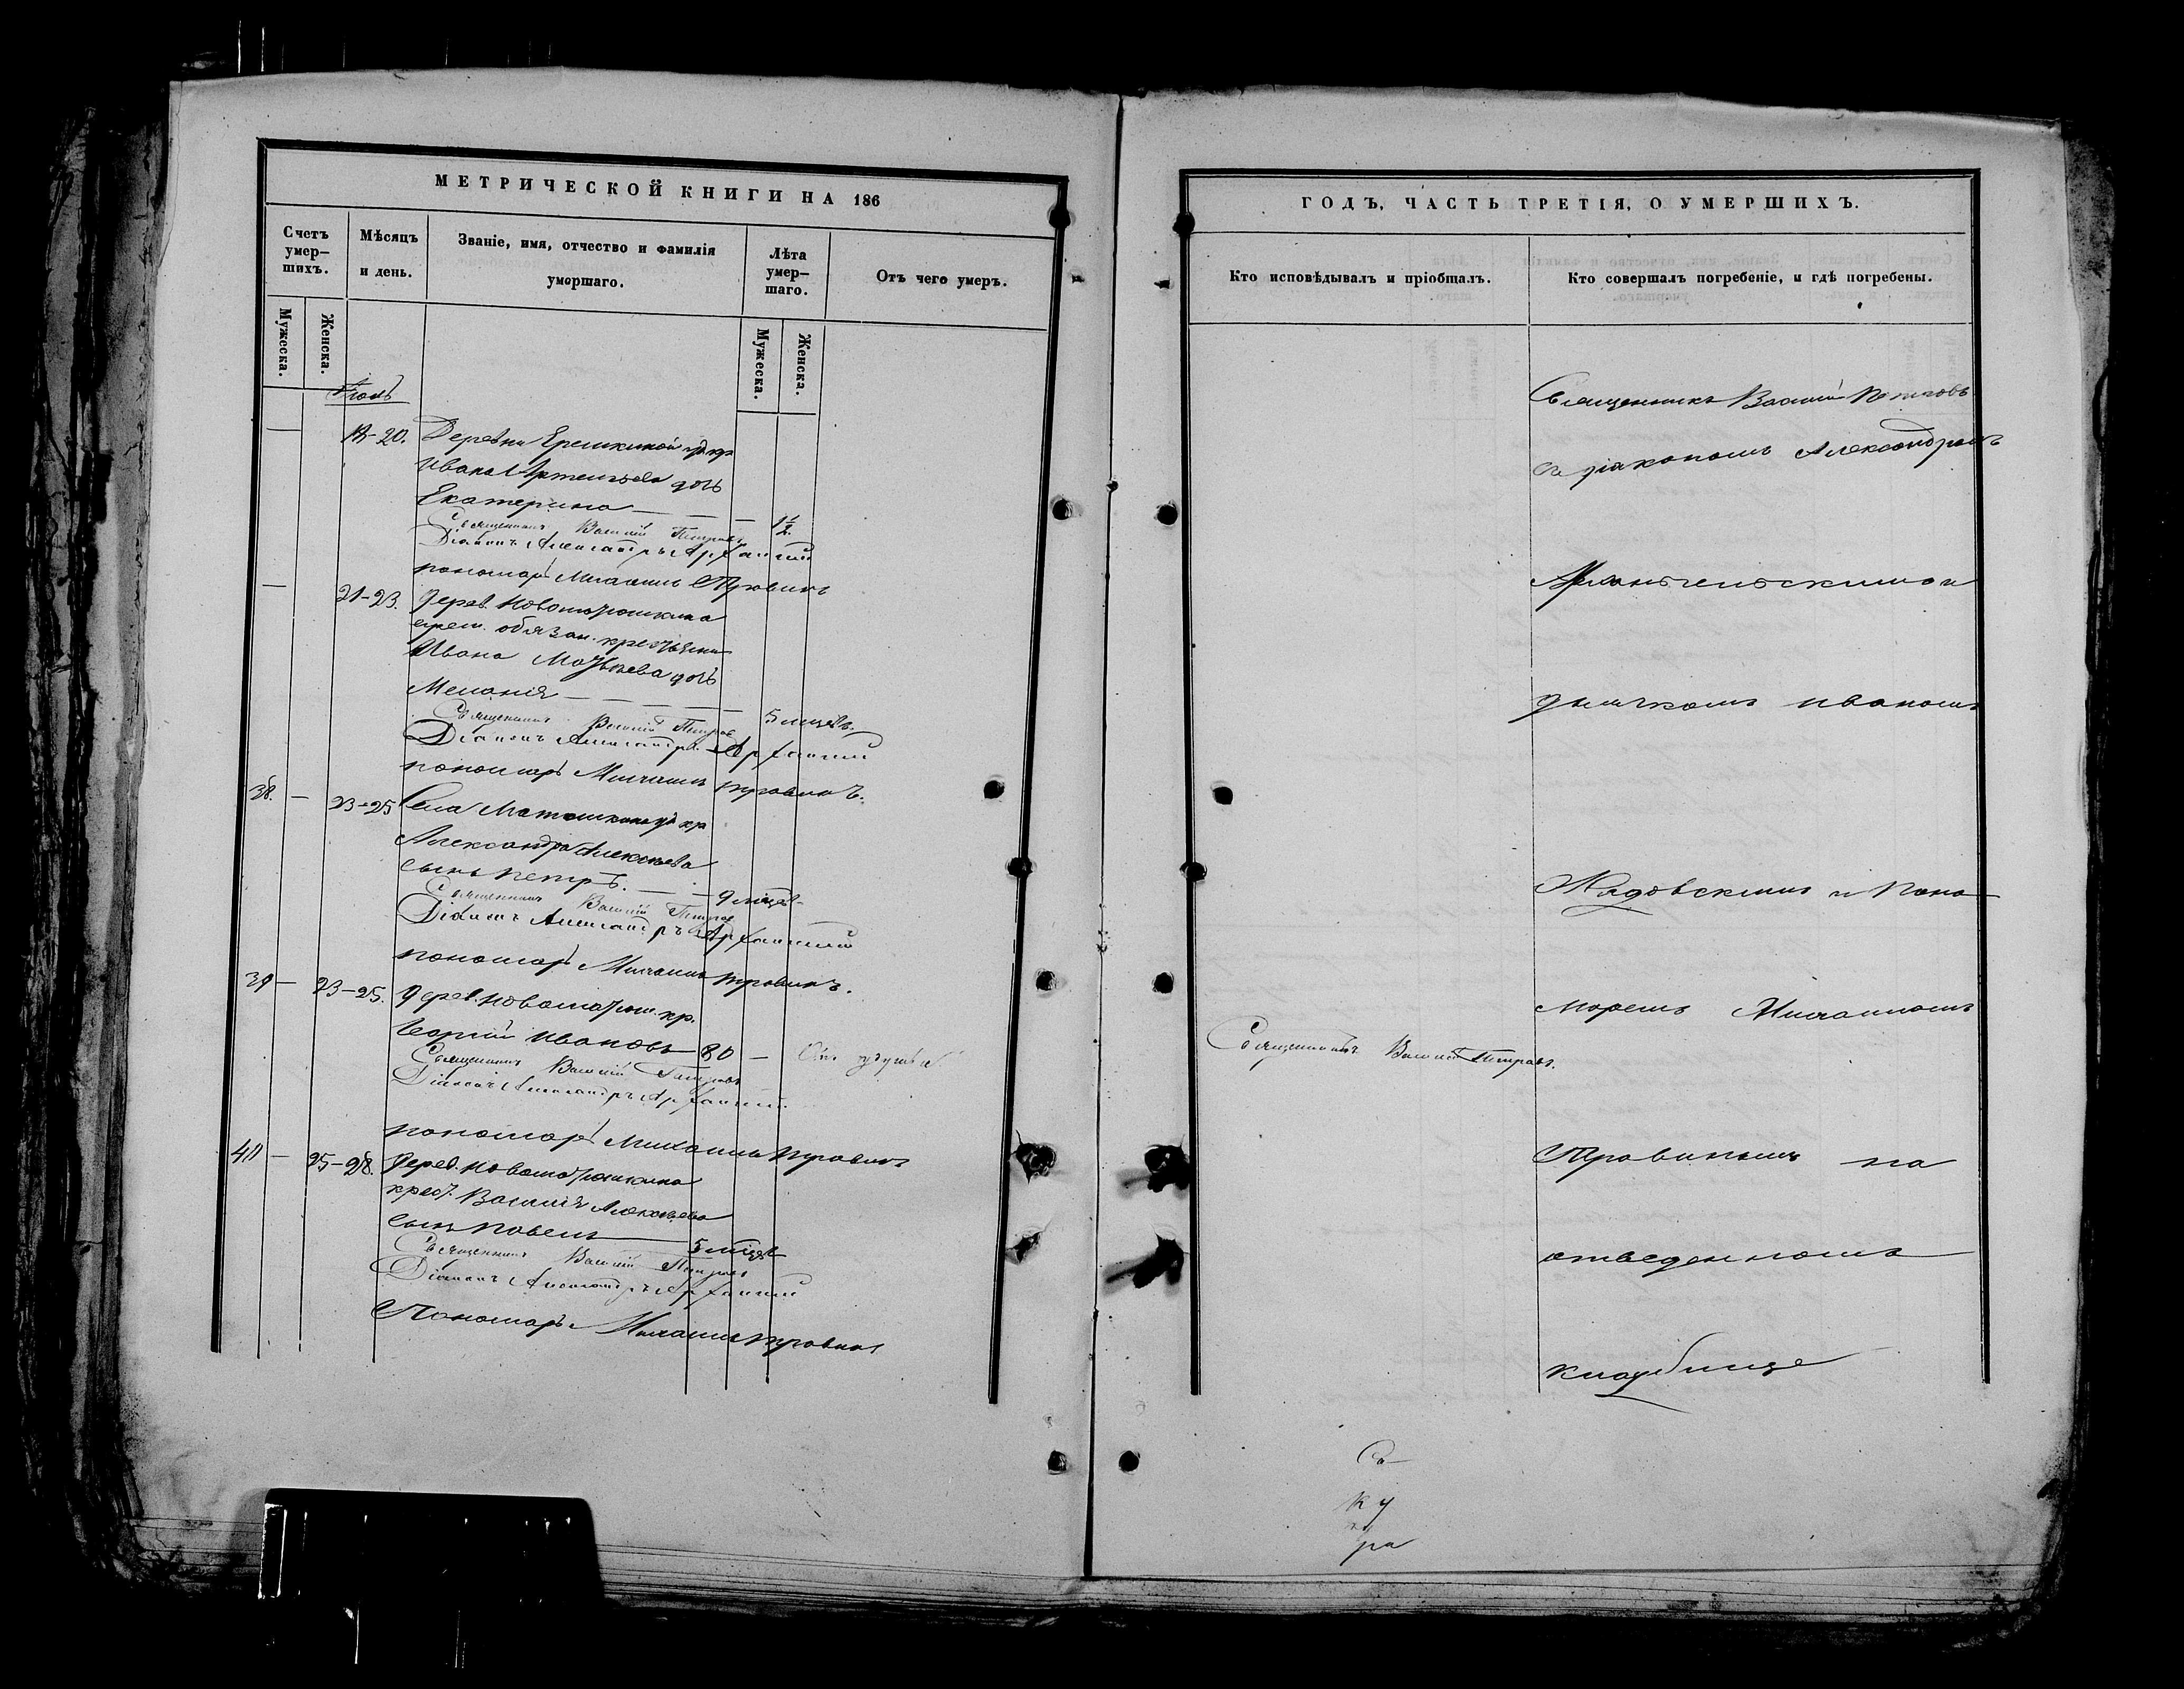 МЕТРИЧЕСКОЙ КНИГИ НА 186
Счетъ умер–шихъ.
Мѣсяцъ и день.
Званіе, имя, отчество и фамилія умершаго.
Лѣта умер–шаго.
Отъ чего умеръ.
Мужеска.
Женска.
Мужеска.
Женска.
— 18-20. Деревни Ерешкиной
Ивана Артемьева дочь
Екатерина — — — 1½
Священникъ Василій Петровъ
Діаконъ Александръ Архангел
пономарь Михаилъ Травинъ
— 21-23. Дерев. Новото
врем. обязан. крестьянина
Ивана Матвѣева дочь
Меланія — — — — 5 мцевъ.
Священникъ Василій Петров
Діаконъ Александръ Архангел
пономарь Михаилъ Травинъ.
38. — 23-25 Села кр
Александра Алексѣева
сынъ Петръ. — — 9 мцев
Священникъ Василій Петров
Діаконъ Александръ Архангел
пономарь Михаилъ Травинъ.
39 — 23-25. Дерев. кр.
Георгій Ивановъ 80 — Отъ
Священникъ Василій Петровъ
Діаконъ Александръ Архангел
пономарь Михаилъ Травинъ
40 — 25-28. Дерев.
крест. Василія Алексѣева
сынъ Павелъ — 5 мцев
Священникъ Василій Петровъ
Діаконъ Александръ Архангел
Пономарь Михаилъ Травинъ
ГОДЪ, ЧАСТЬ ТРЕТІЯ, О УМЕРШИХЪ.
Кто исповѣдывалъ и пріобщалъ.
Кто совершалъ погребеніе, и гдѣ погребены.
Священникъ Василій Петровъ
Священникъ Василій Петровъ
съ діакономъ Александромъ
Архангельскимъ и
дьячкомъ Иваномъ
Кадовскимъ и Поно
моремъ Михаиломъ
Травинымъ на
отведенномъ
кладбище
Са
ку
ра